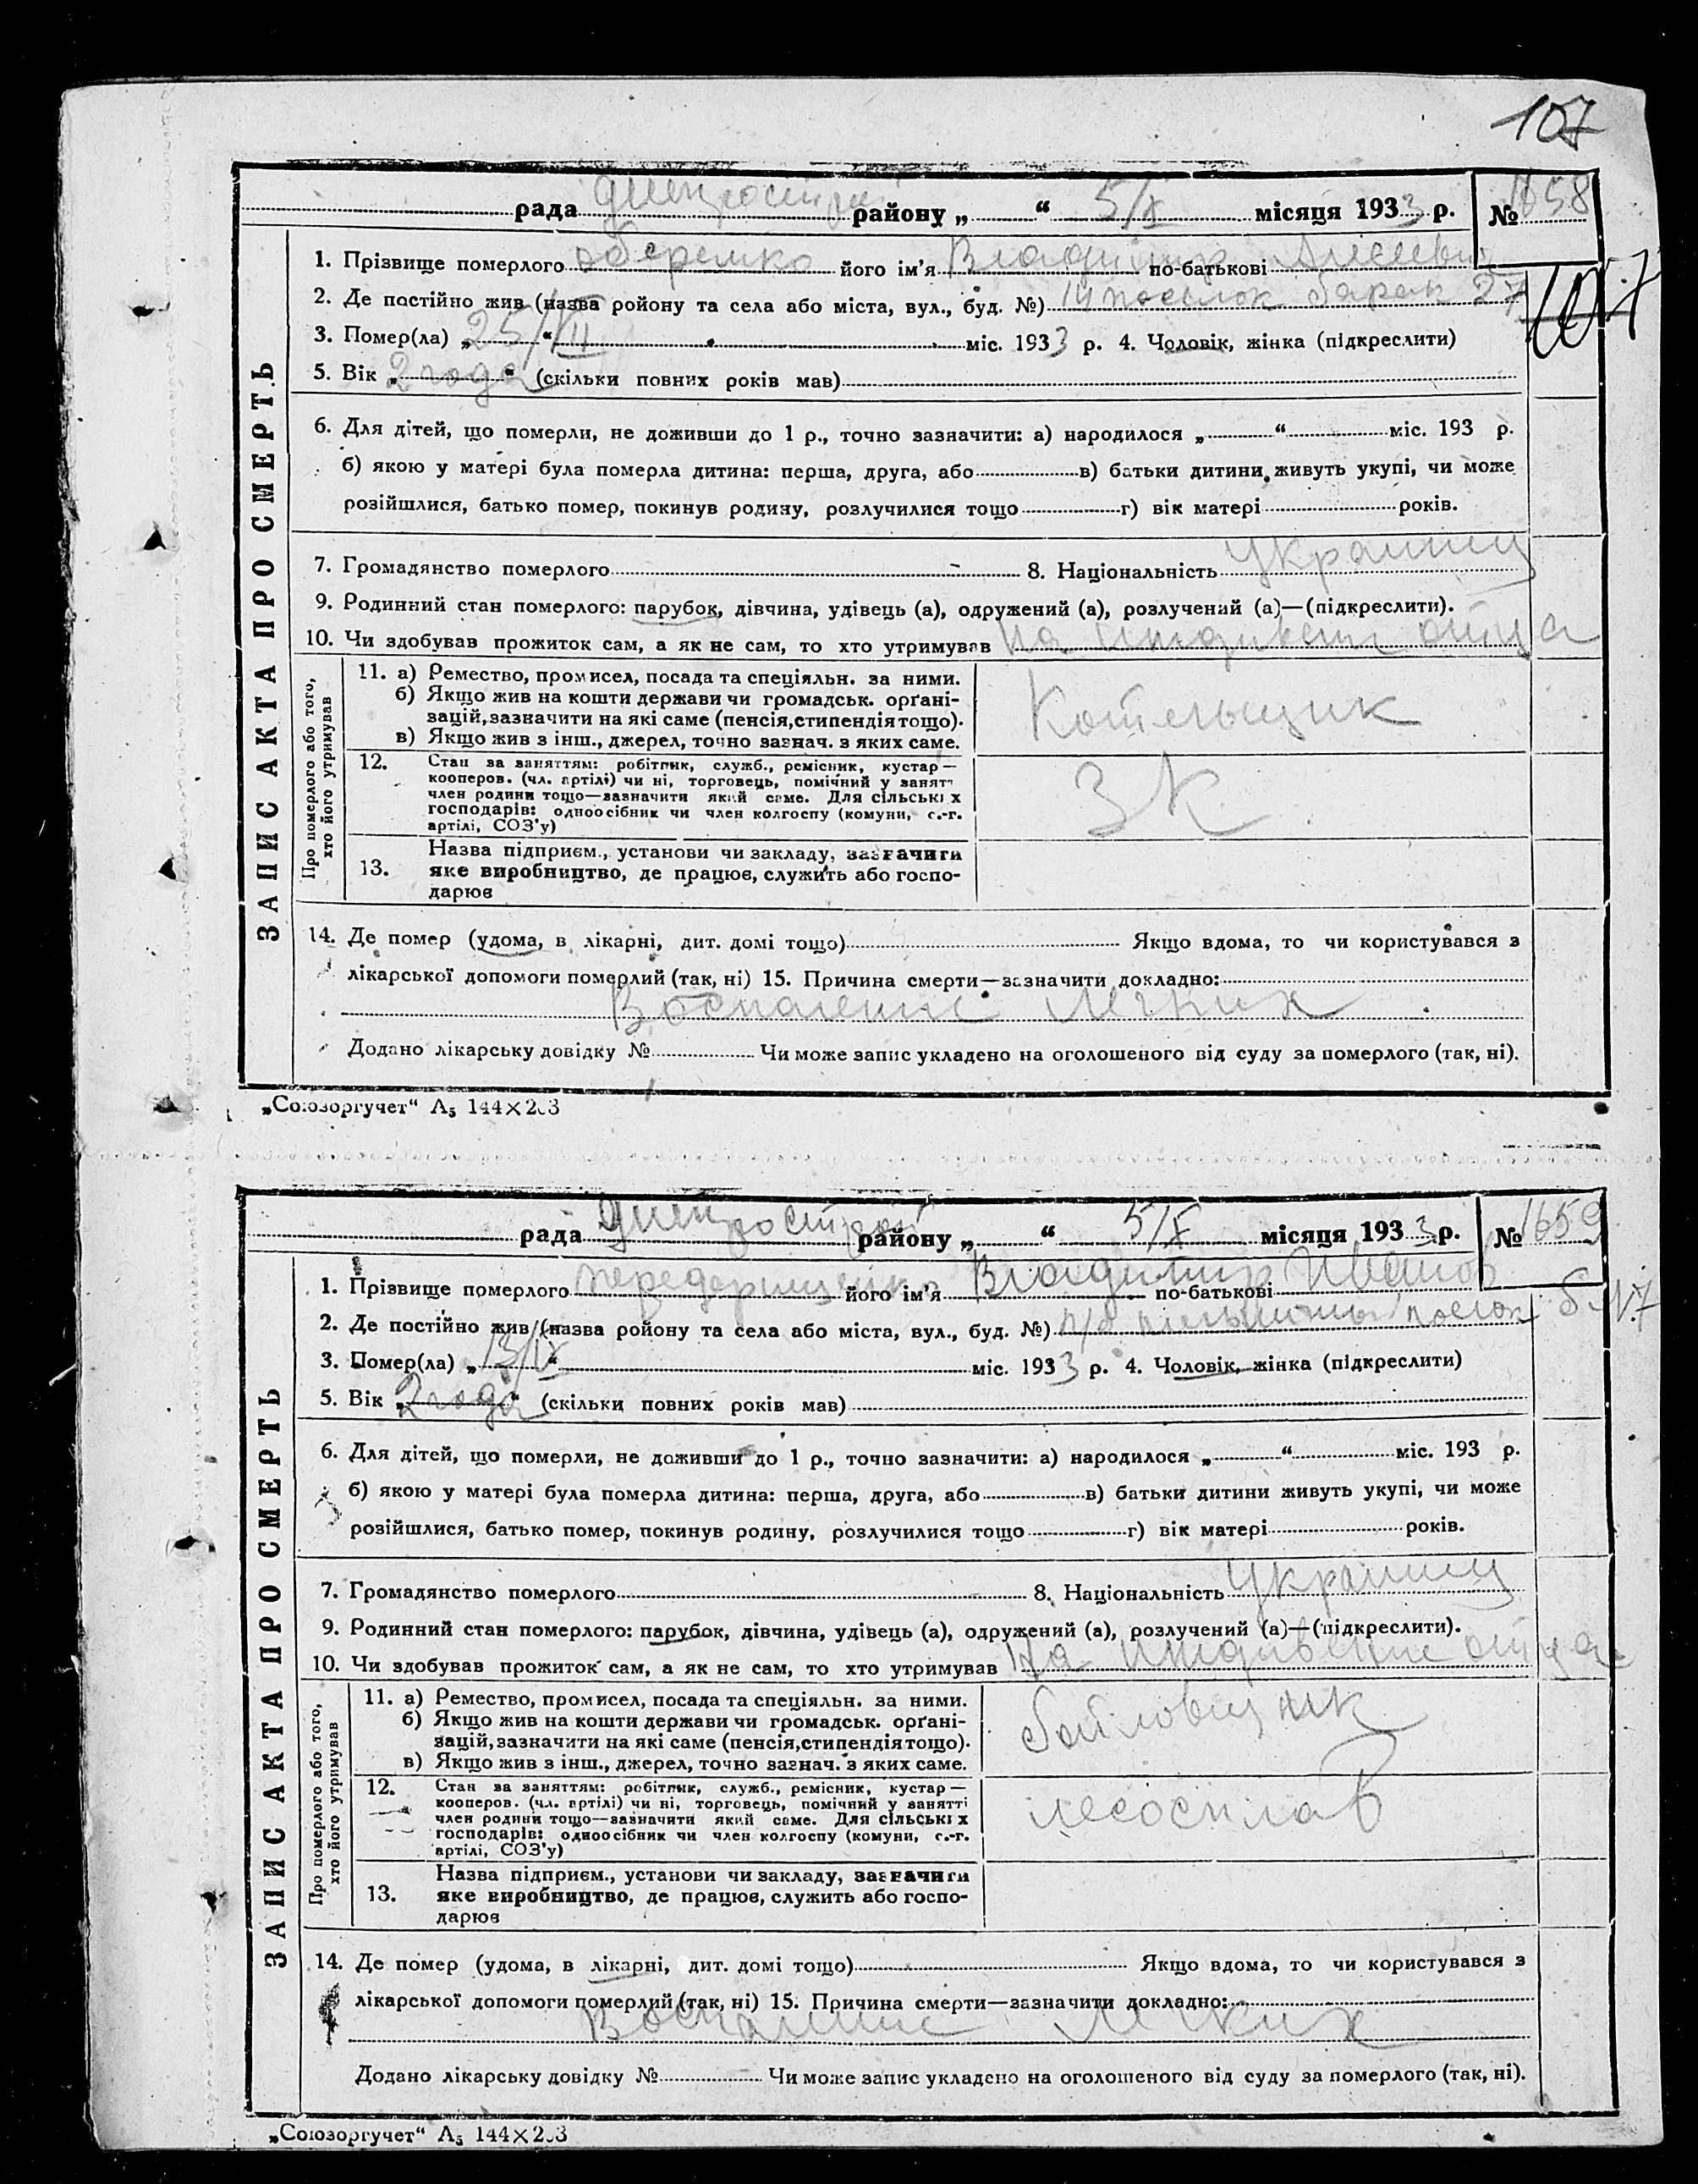 107
рада Днепрострой району „ “ 5/X місяця 1933 р. № 1658
1. Прізвище померлого Оберемко його ім'я Владимир по-батькові
107
2. Де постійно жив (назва ройону та села або міста, вул., буд. №) 14 поселок барак 27
3. Помер(ла) „ 25/VII “ міс. 1933 р. 4. Чоловік, жінка (підкреслити)
5. Вік „ 2 года “ (скільки повних років мав)
6. Для дітей, що померли, не доживши до 1 р., точно зазначити: а) народилося „ “ міс. 193 р.
б) якою у матері була померла дитина: перша, друга, або в) батьки дитини живуть укупі, чи може
розійшлися, батько помер, покинув родину, розлучилися тощо г) вік матері років.
7. Громадянство померлого - 8. Національність украинец
9. Родинний стан померлого: парубок, дівчина, удівець (а), одружений (а), розлучений (а)—(підкреслити).
10. Чи здобував прожиток сам, а як не сам, то хто утримував на иждивении отца
ЗАПИС АКТА ПРО СМЕРТЬ
Про померлого або того, хто його утримував
11. а) Ремество, промисел, посада та спеціяльн. за ними.
б) Якщо жив на кошти держави чи громадськ. орґані-
зацій, зазначити на які саме (пенсія, стипендія тощо).
в) Якщо жив з інш., джерел, точно зазнач. з яких саме.
Котельщик
12. Стан за заняттям: робітник, служб., ремісник, кустар—
кооперов. (чл. артілі) чи ні, торговець, помічний у занят
член родини тощо—зазначити який саме. Для сільських
господарів: одноосібник чи член колгоспу (комуни, с.-г.
артілі, СОЗ'у)
ЗК
13. Назва підприєм., установи чи закладу, зазначити
яке виробництво, де працює, служить або госпо-
дарює
14. Де помер (удома, в лікарні, дит. домі тощо) Якщо вдома, то чи користувався з
лікарської допомоги померлий (так, ні) 15. Причина смерти—зазначити докладно:
Воспаление легких
Додано лікарську довідку № Чи може запис укладено на оголошеного від суду за померлого (так, ні).
„Союзоргучет“ А5 144×203
рада Днепрострой району „ “ 5/X місяця 1933 р. № 1659
1. Прізвище померлого його ім'я Владимир по-батькові Иванов
2. Де постійно жив (назва ройону та села або міста, вул., буд. №) поселок б. N.7
3. Помер(ла) „ 13/IX “ міс. 1933 р. 4. Чоловік, жінка (підкреслити)
5. Вік „ 2 года “ (скільки повних років мав)
6. Для дітей, що померли, не доживши до 1 р., точно зазначити: а) народилося „ “ міс. 193 р.
б) якою у матері була померла дитина: перша, друга, або в) батьки дитини живуть укупі, чи може
розійшлися, батько помер, покинув родину, розлучилися тощо г) вік матері років.
7. Громадянство померлого 8. Національність украинец
9. Родинний стан померлого: парубок, дівчина, удівець (а), одружений (а), розлучений (а)—(підкреслити).
10. Чи здобував прожиток сам, а як не сам, то хто утримував На иждивение отца
ЗАПИС АКТА ПРО СМЕРТЬ
Про померлого або того, хто його утримував
11. а) Ремество, промисел, посада та спеціяльн. за ними.
б) Якщо жив на кошти держави чи громадськ. орґані-
зацій, зазначити на які саме (пенсія, стипендія тощо).
в) Якщо жив з інш., джерел, точно зазнач. з яких саме.
12. Стан за заняттям: робітник, служб., ремісник, кустар—
кооперов. (чл. артілі) чи ні, торговець, помічний у занятті
член родини тощо—зазначити який саме. Для сільських
господарів: одноосібник чи член колгоспу (комуни, с.-г.
артілі, СОЗ'у)
лесосплав
13. Назва підприєм., установи чи закладу, зазначити
яке виробництво, де працює, служить або госпо-
дарює
14. Де помер (удома, в лікарні, дит. домі тощо) Якщо вдома, то чи користувався з
лікарської допомоги померлий (так, ні) 15. Причина смерти—зазначити докладно:
Воспаление легких
Додано лікарську довідку № Чи може запис укладено на оголошеного від суду за померлого (так, ні).
„Союзоргучет“ А5 144×203